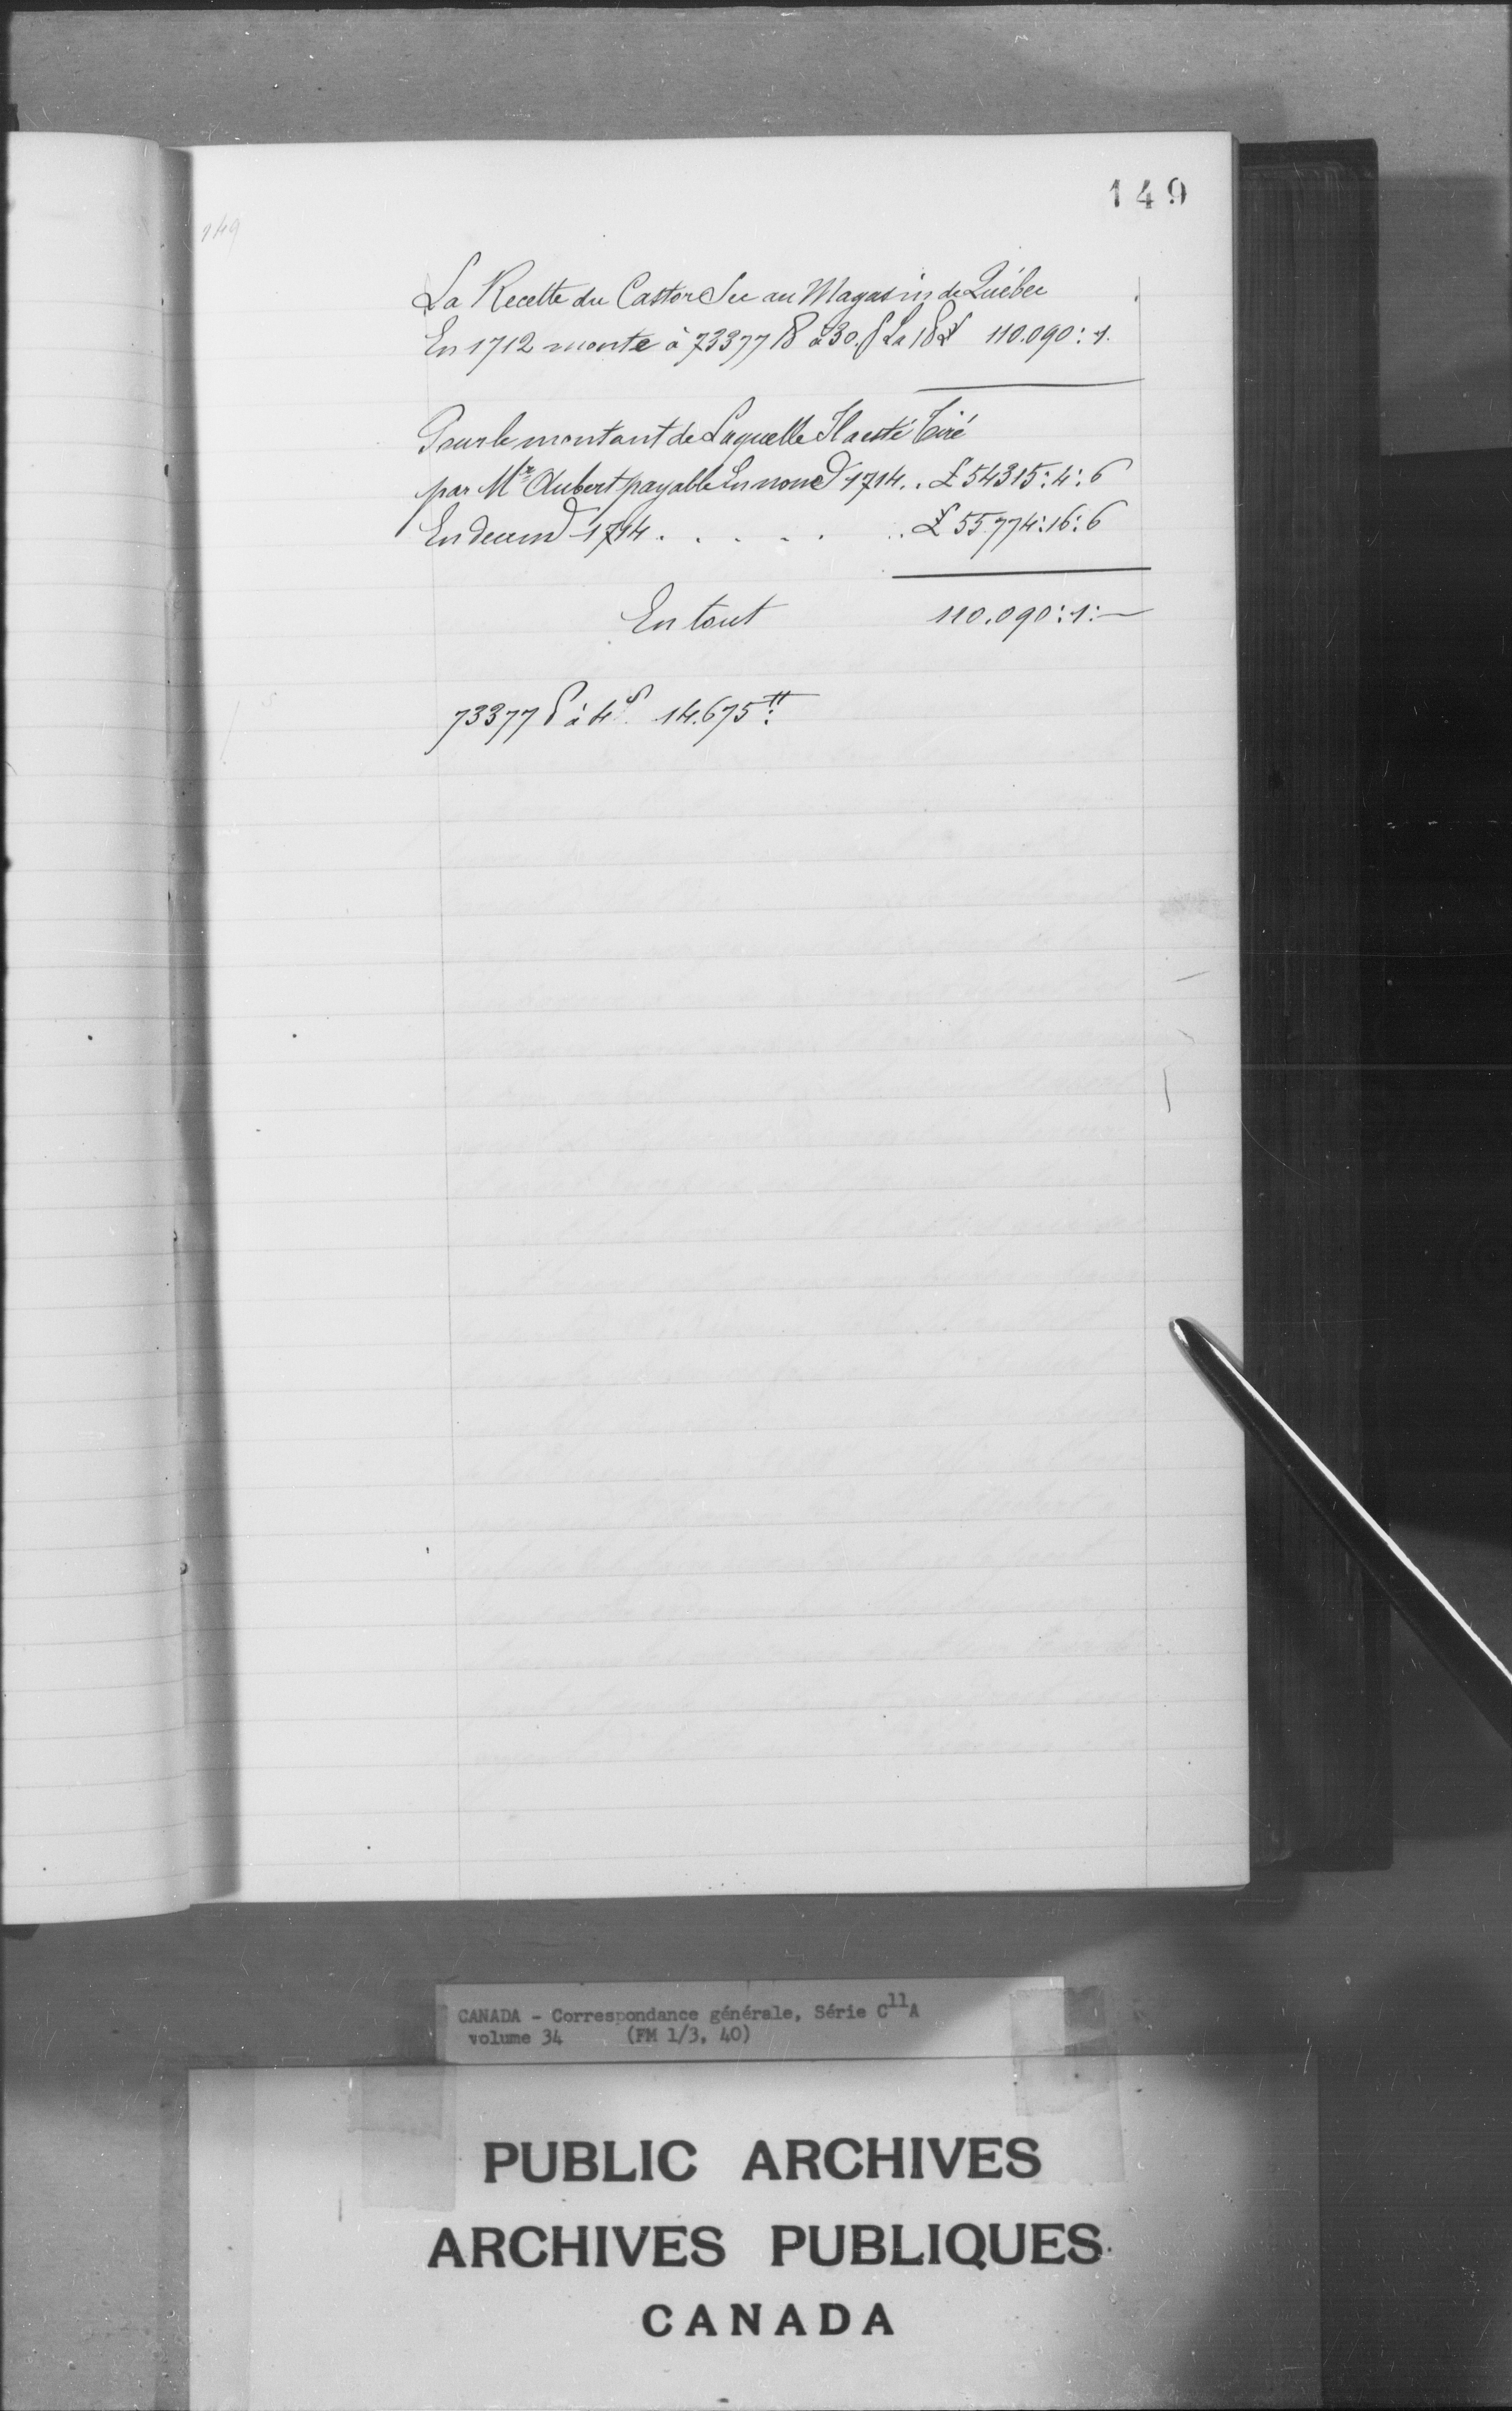 149
149
La Recette du Castor Sec au Magasin de Québec
En 1712 monte à 73377 ℔ à 30.s La ℔ £ 110.090:1.
Pour le montant de Laquelle Il a esté Tiré
par Mr Aubert payable En nov 1714.. £ 54315:4:6
En decem 1714 . . . . . .. £ 55.774:16:6
En tout 110.090:1:—
73377 ℔ à 4s. 14.675tt:
CANADA - Correspondance générale, Série C11A
volume 34 (FM 1/3, 40)
PUBLIC ARCHIVES
ARCHIVES PUBLIQUES
CANADA